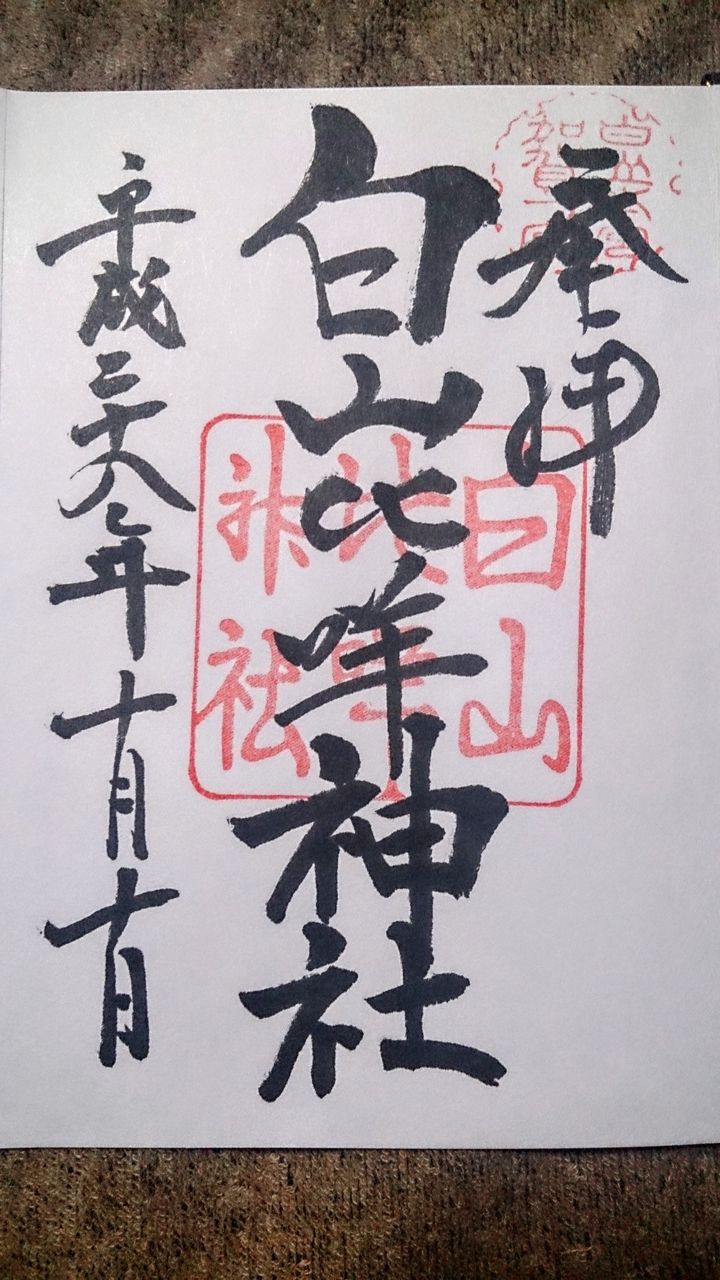 奉拝
白山比咩神社
平成二十八年十月十日
白山
比咩
神社